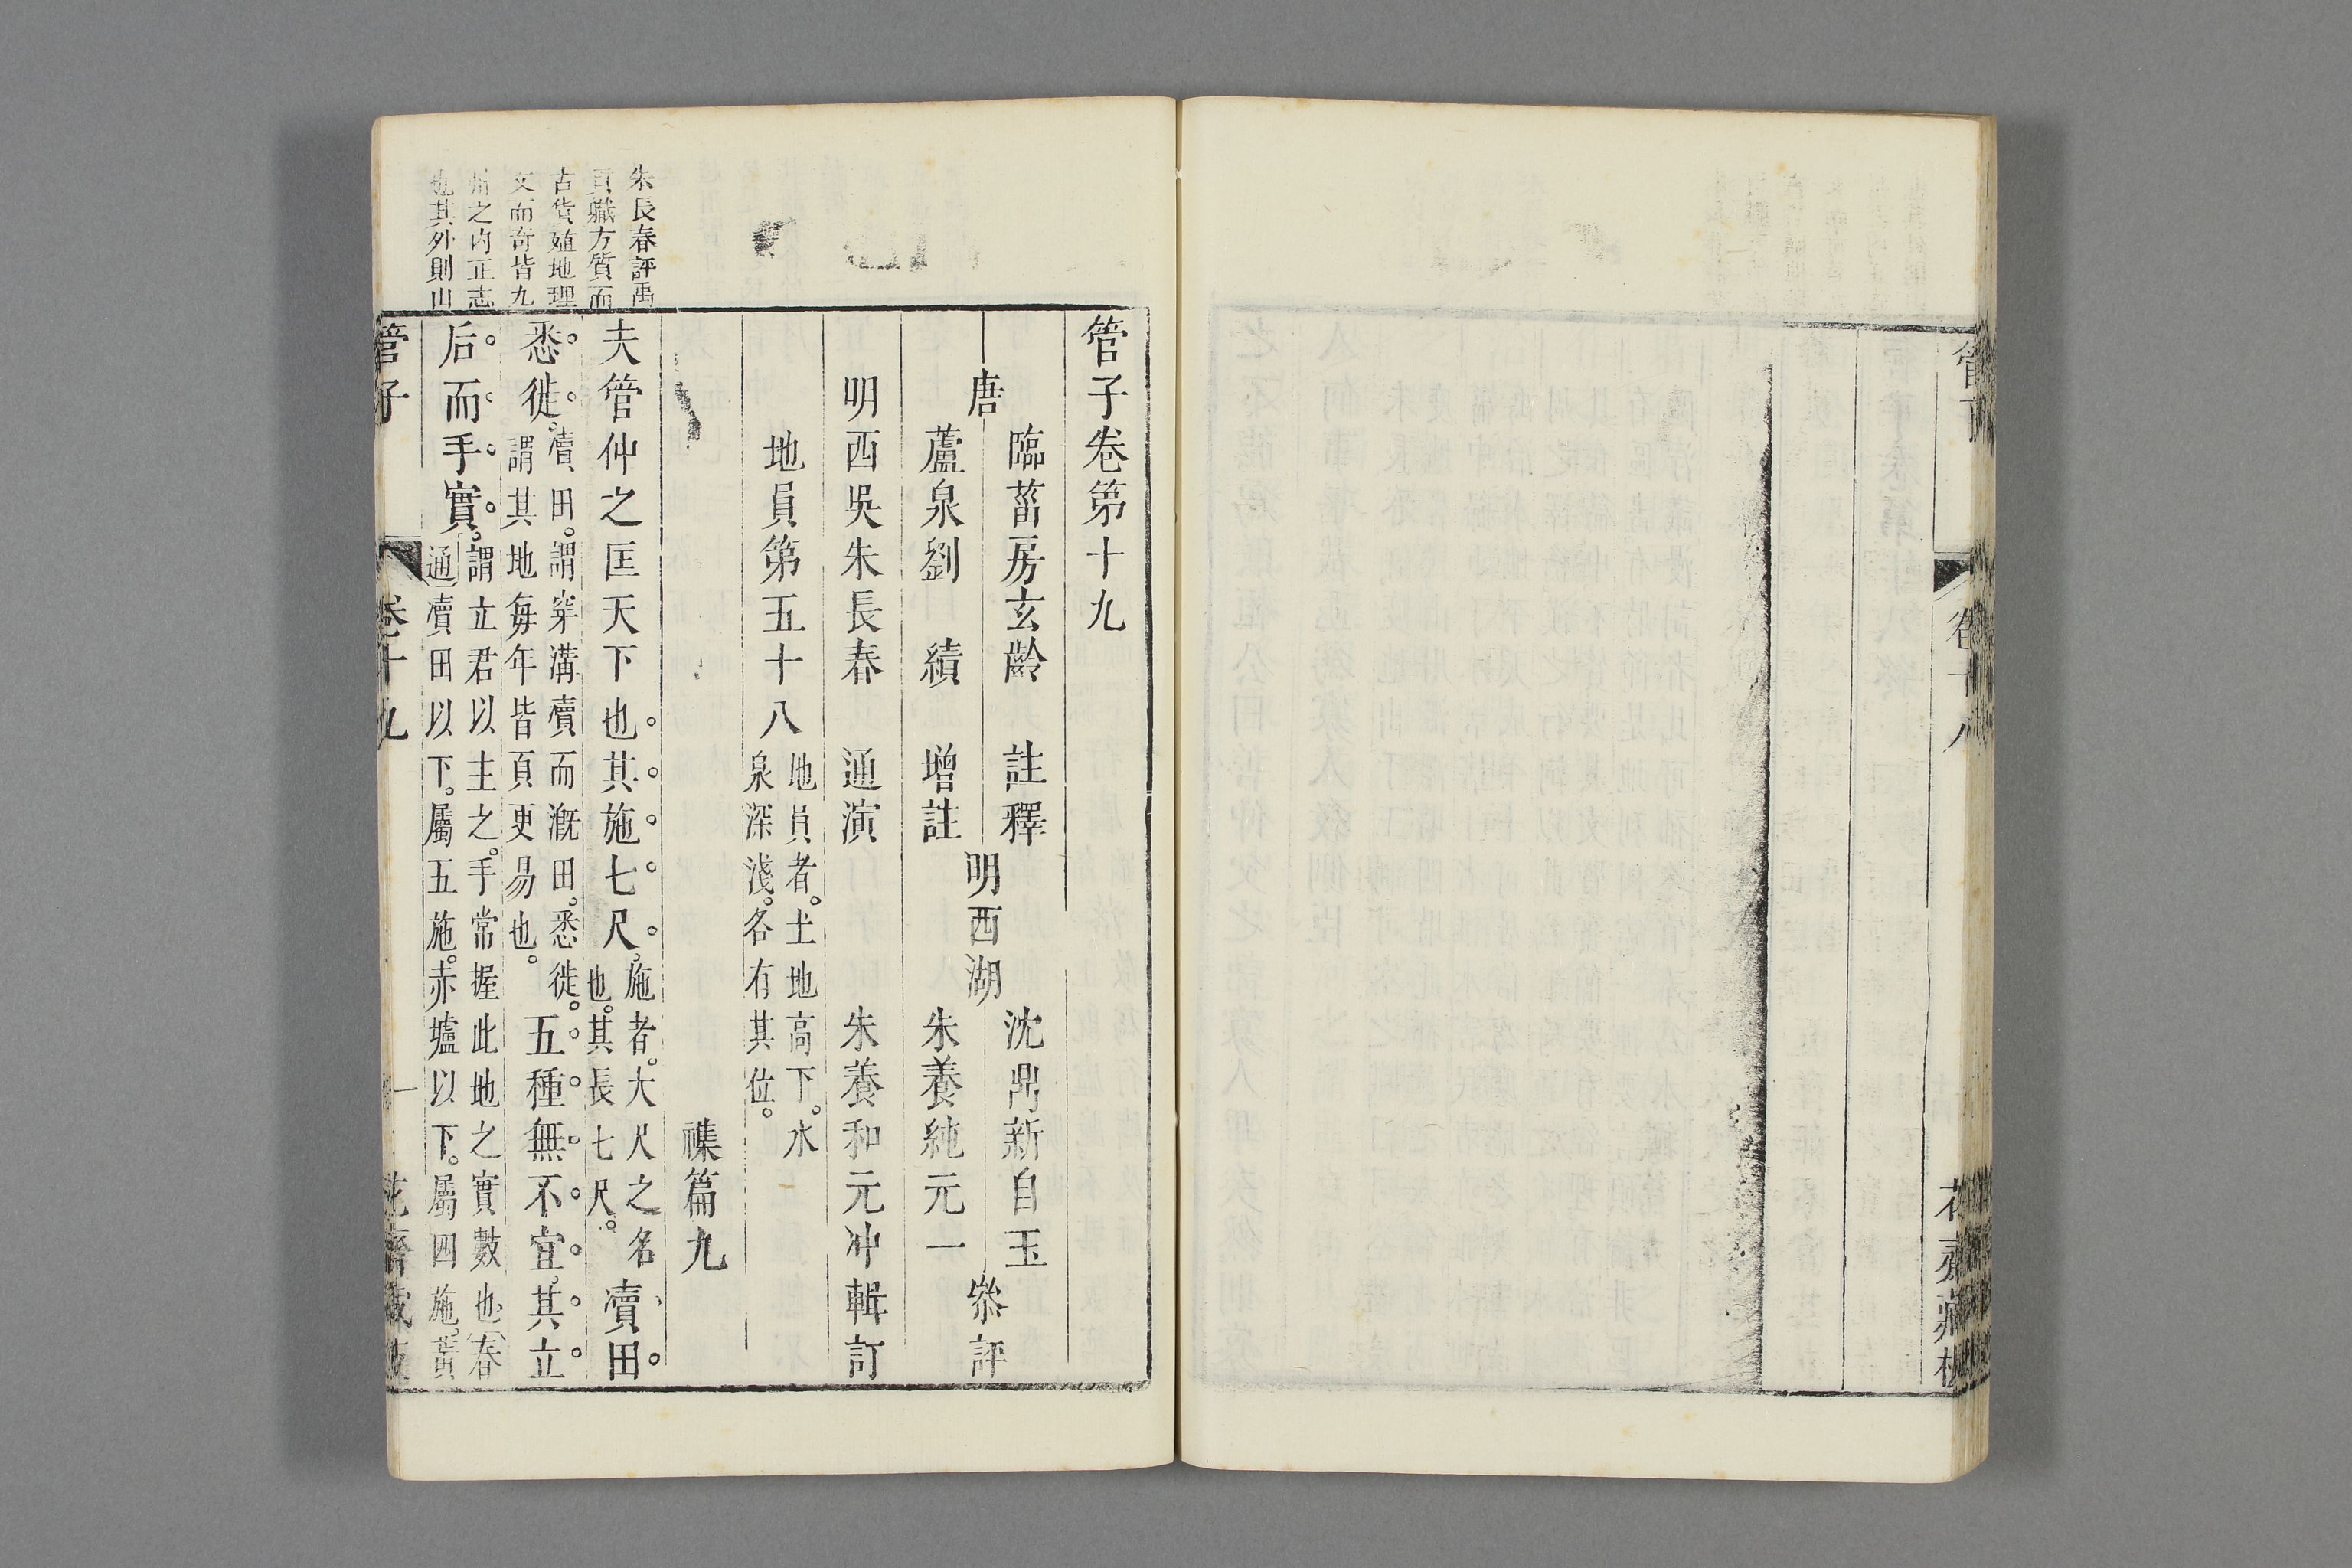 管子
卷十八
管子卷第十九
唐
臨菑房玄齡 註釋
蘆泉劉 績 增註
明西湖
沈鼎新自玉
朱養純元一
叅評
明西吳朱長春 通演
朱養和元冲輯訂
地員第五十八
地員者。土地高下。水
泉深淺。各有其位。
襍篇九
夫管仲之匡天下也。其施七尺。
施者。大尺之名
也。其長七尺。
瀆田。
悉徙。
瀆田。謂穿溝瀆而漑田。悉徙。
謂其地每年皆頁更易也。
五種無不宜。其立
后而手實。
謂立君以主之。手常握此地之實數也（春
通）瀆田以下。屬五施。赤壚以下。屬四施。黃
朱長春評禹
貢職方質而
古貨殖地理
文而奇皆九
州之内正志
也其外則山
管子
卷十九
一
花齋藏板